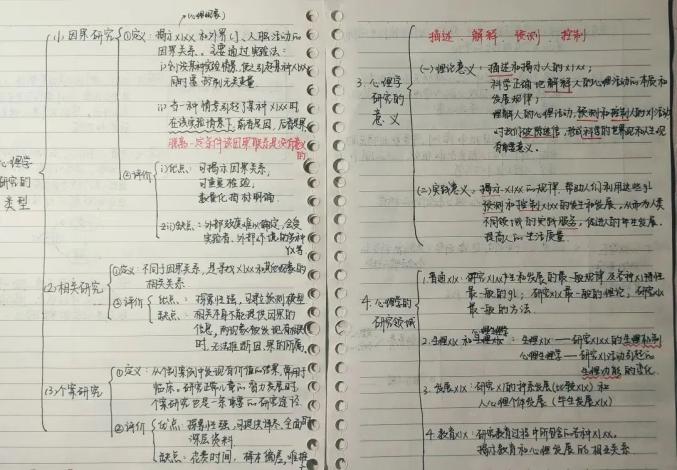 (1) 因果研究
①定义：揭示xlxx和外界
因果关系。主要通过实验法：
同时
ii) 当一种情景引起了某种xlxx时
在该实验情景下，前者是因，后者是果
②评价
i) 优点：可揭示因果关系，
可重复检验，
数量化指标明确.
ii) 缺点：外部效度难以确定，会受
实验者、外部环境的多种
心理学
研究的
类型
(2) 相关研究
①定义：不同于因果关系，是寻找xlxx和其他现象的
相关关系
②评价
优点：探索性强，可建立预测模型
缺点：相关不能提供因果的
信息，两现象
时，无法推断因果的所属。
(3) 个案研究
①定义：从个别案例中发现有价值的结果，常用于
临床。研究正常儿童的智力发展时，
个案研究也是一条重要的研究途径
②评价
优点：探索性强，可提供详尽、全面
深层资料
缺点：花费时间，样本偏居，难推
描述 解释 预测 控制
3. 心理学
研究的
意义
(一) 理论意义：描述和揭示人的xlxx；
科学正确地解释人的心理活动的本质和
发展规律；
理解人的心理活动，预测和控制人的xl活动
对我们破除迷信，形成科学的世界观和人生观
有重要意义.
(二) 实践意义：揭示xlxx的规律，帮助人们利用这些gl
预测和控制xlxx的发生和发展，从而为人类
不同领域的实践服务，促进人的毕生发展.
提高人的生活质量.
4. 心理学的
研究领域
1. 普通xlx：研究xlxx产生和发展的最一般规律及各种xl特性
最一般的gl；研究xlx最一般的理论，研究xlx
最一般的方法.
2. 生理xlx和心理生理学：生理xlx——研究xlxx的生理机制
心理生理学——研究xl活动引起的
生理功能的变化.
3. 发展xlx：研究xl的种系发展(比较xlx)和
人心理个体发展(毕生发展xlx)
4. 教育xlx：研究教育过程中所包含的各种xlxx.
揭示教育和心理发展的相互关系.